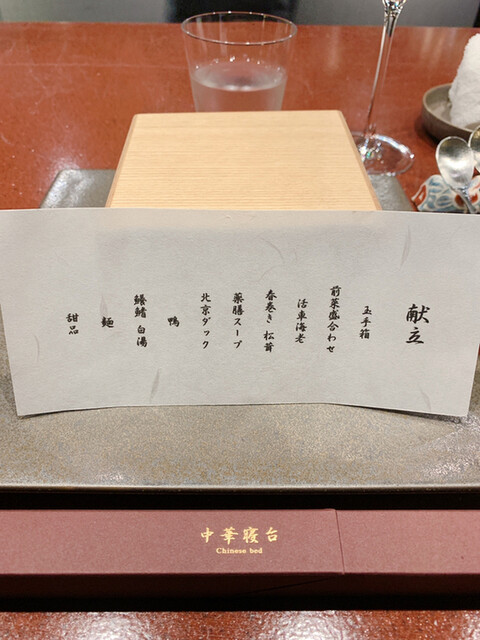 献立
玉手箱
前菜盛合わせ
活車海老
春巻き 松茸
薬膳スープ
北京ダック
鴨
鱶鰭 白湯
麺
甜品
中華寝台
Chinese bed